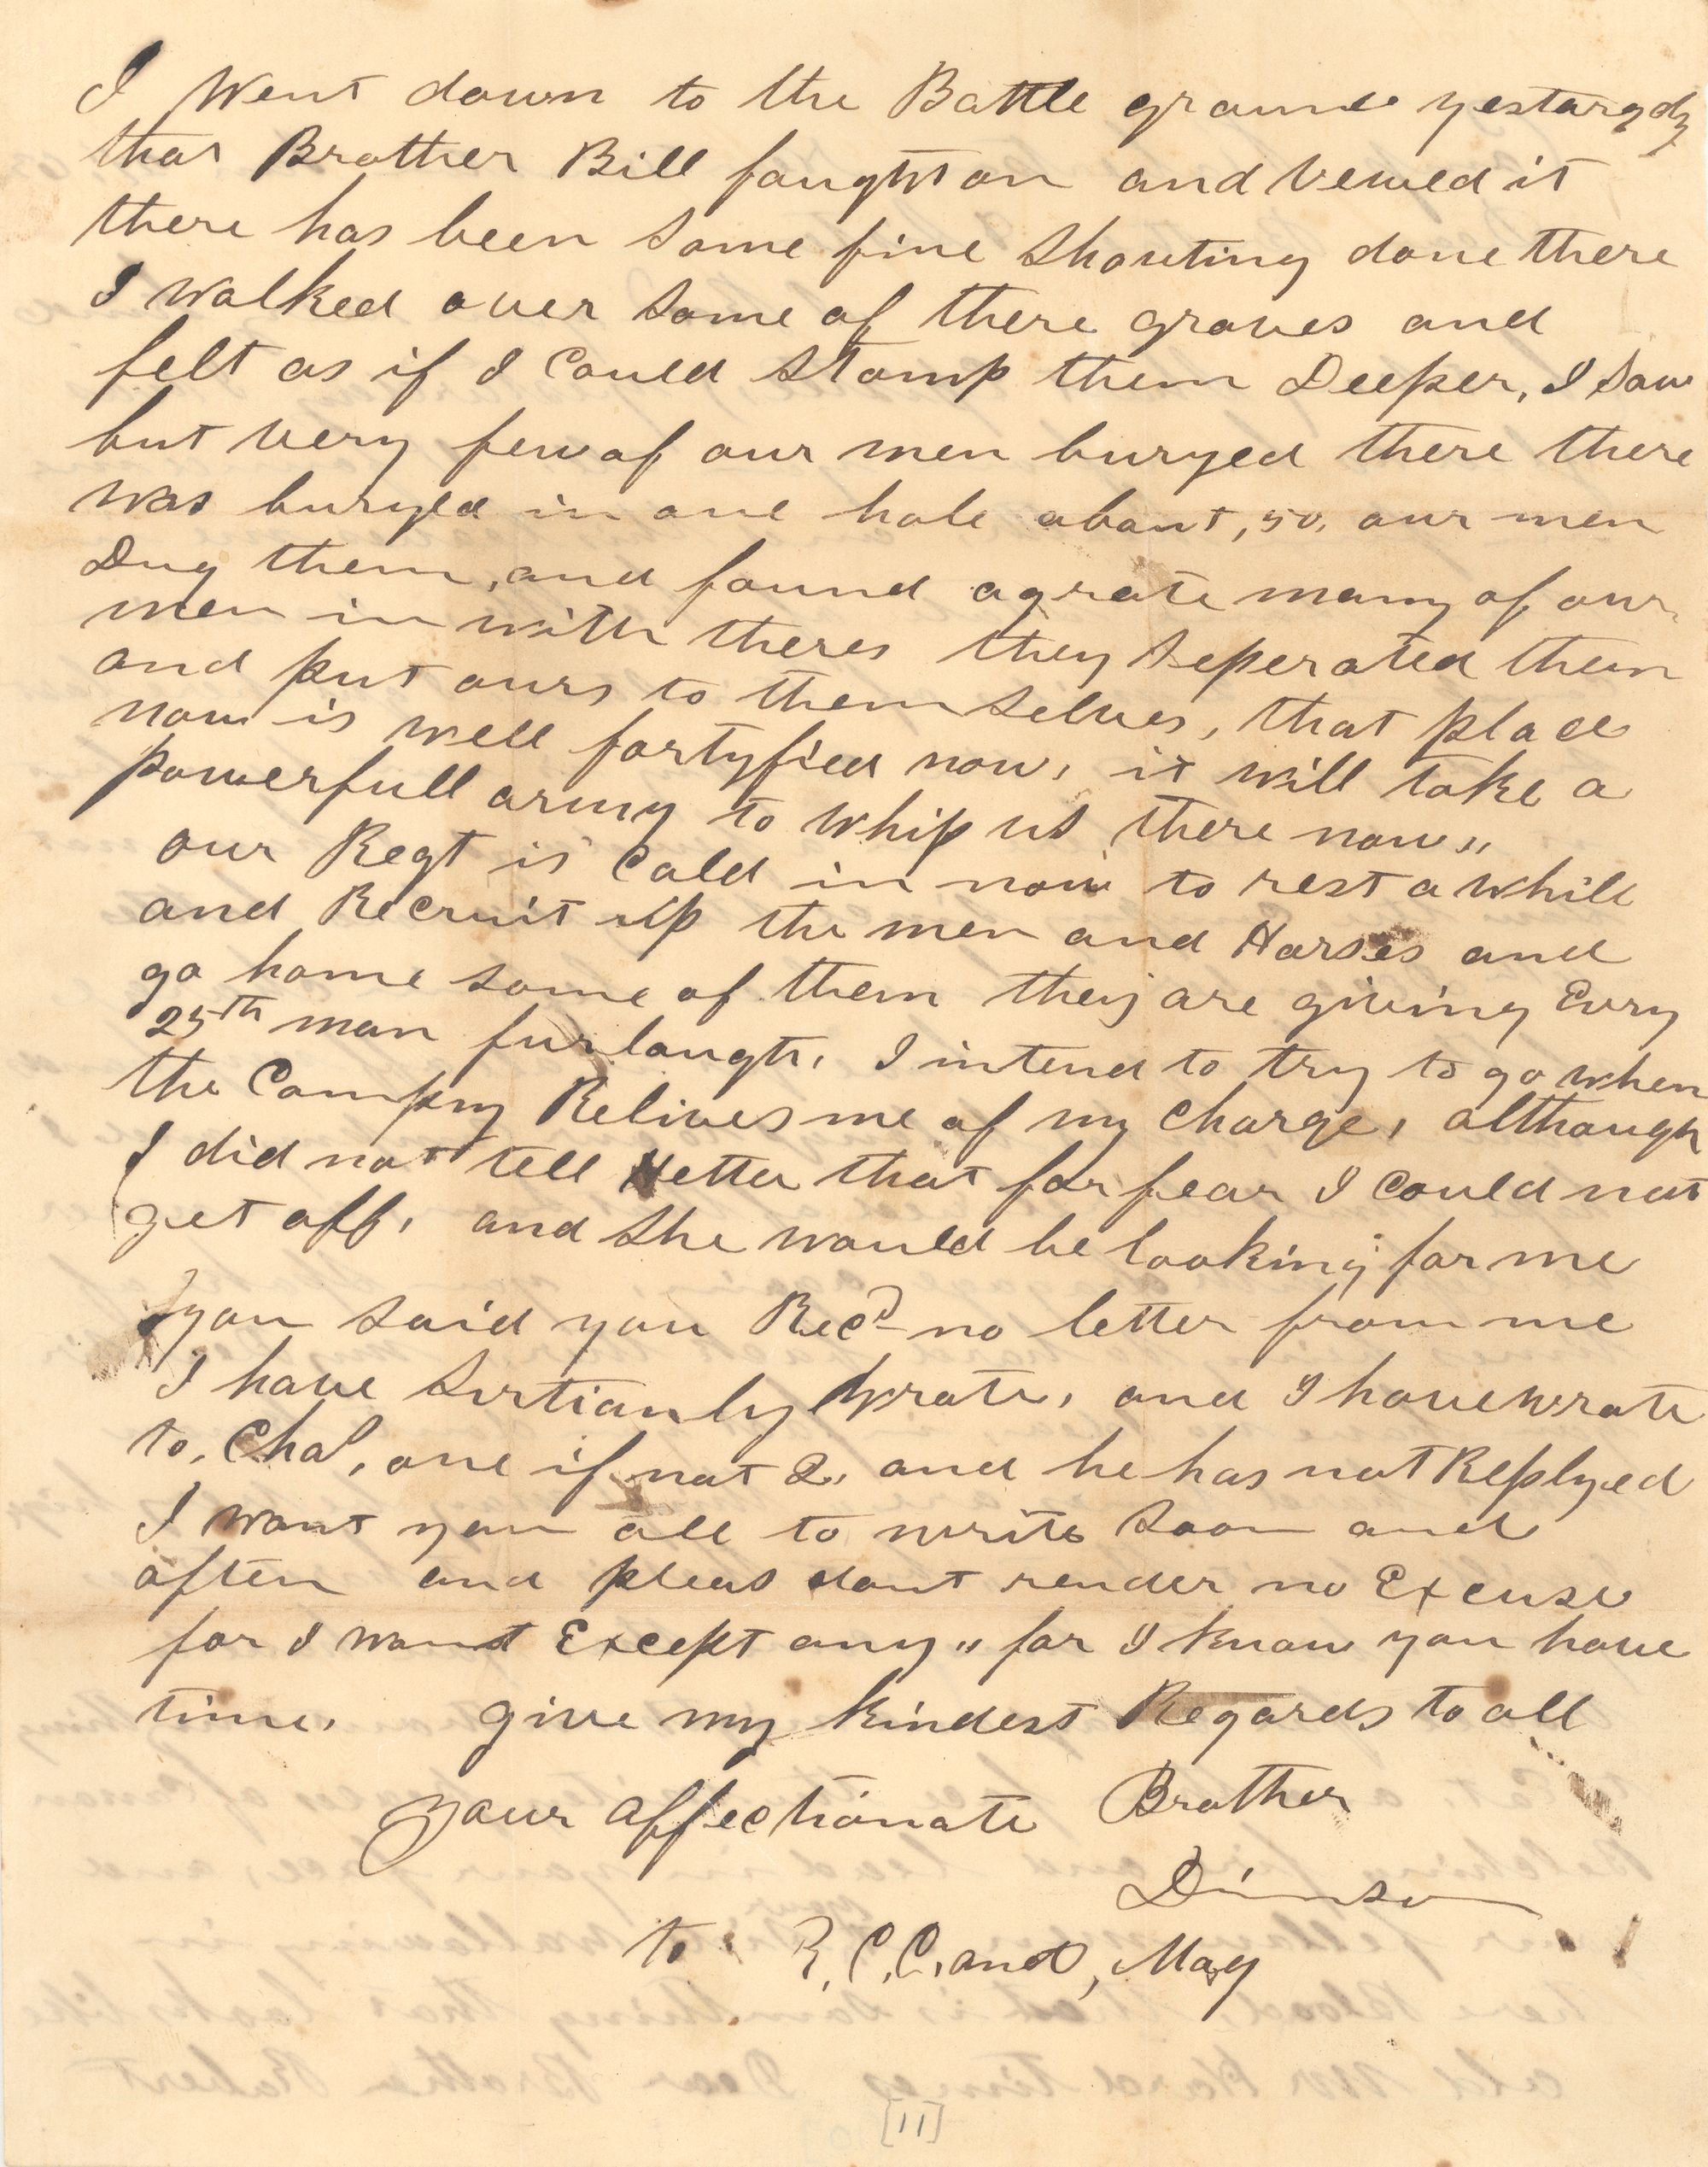 I Went down to the Battle ground yestarday
that Brother Bill faught on and vewed it
there has been some fine Shouting done there
I walked over some of there graves and
felt as if I Could Stomp them Deeper, I saw
but very few of our men buryed there there
was buryed in one hole about, 50, our men
Dug them, and found a grate many of our
men in with theres they Seperated them
and put ours to themselves, that place
now is well fortyfied now, it will take a
powerfull army to whip us there now"
our Regt is Cald in now to rest a while
and Recruit up the men and Horses and
go home some of them they are giving Evry
25th man furlough, I intend to try to go when
the Compny Relives me of my charge, although
I did not tell Hettee that for fear I could not
get off, and she would be looking for me
you said you Recd no letter from me
I have Sirtianly Wrote, and I have wrote
to, Chas, one if not 2, and he has not Replyed
I want you all to write soon and
often and pleas dont render no Excuse
for I wont Except any" for I know you have
time, give my kindest Regards to all
your affectionate Brother
to R. C. C, and, May
[11]